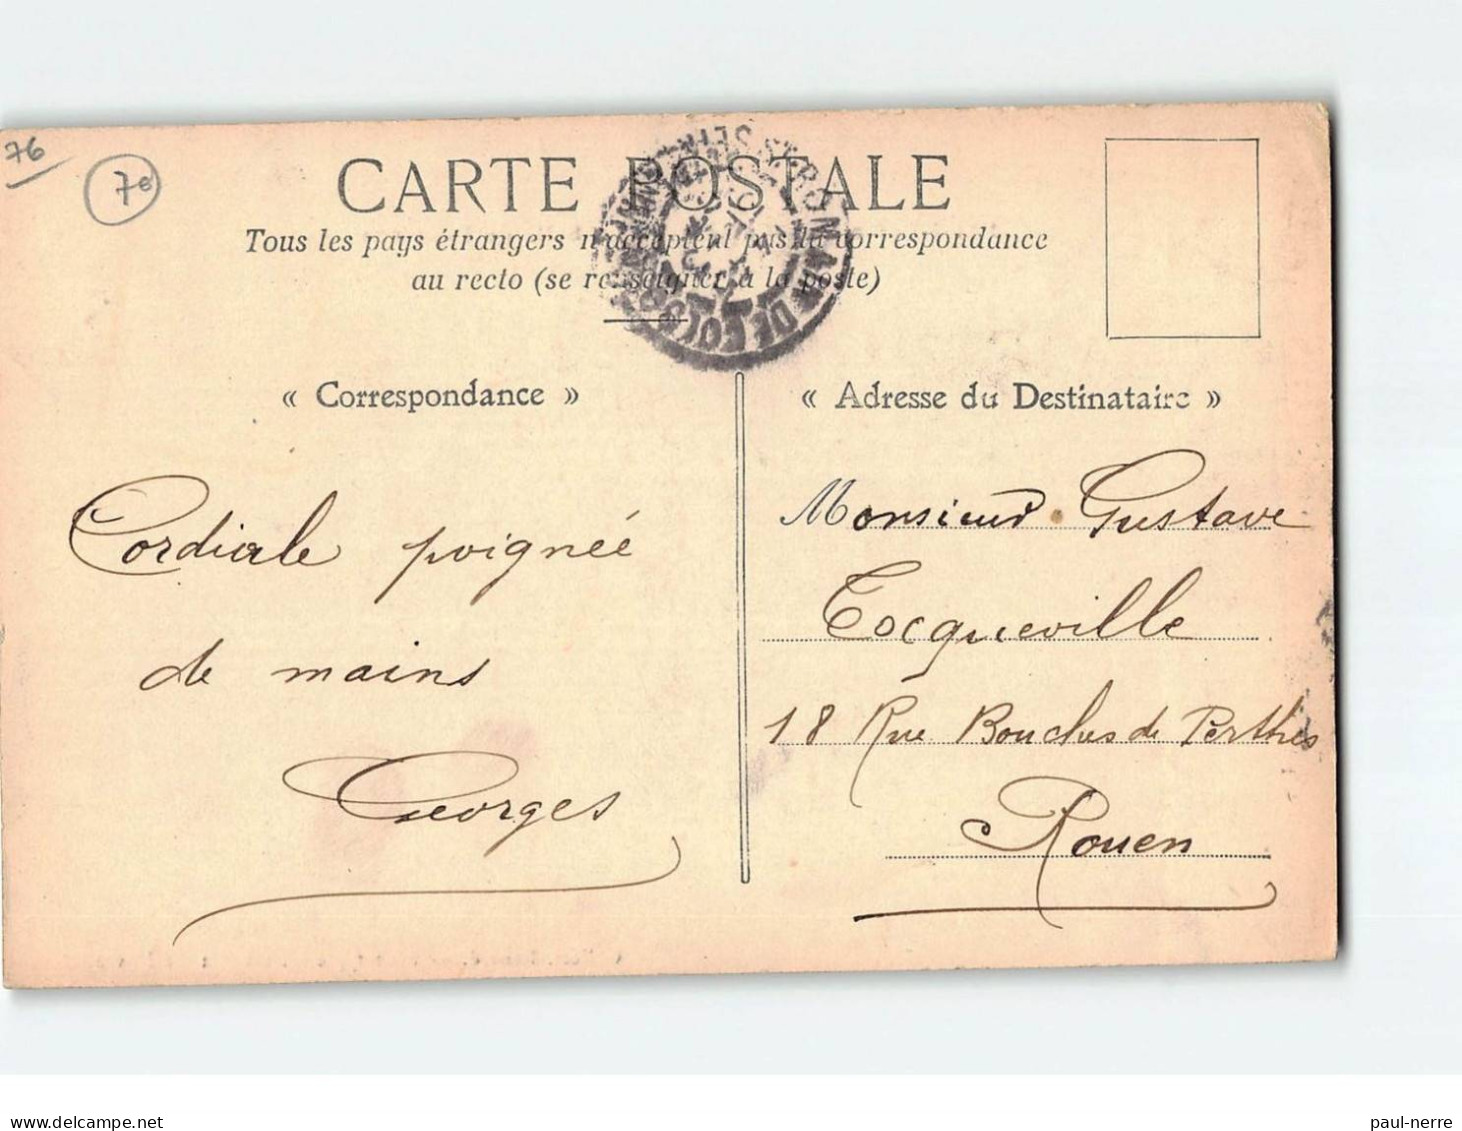 76
7€
CARTE POSTALE
Tous les pays étrangers n'acceptent pas la correspondance
au recto (se renseigner à la poste)
ST ROMAIN DE COLBOSC
« Correspondance »
« Adresse du Destinataire »
Cordiale poignéé
de mains
Georges
Monsieur Gustave
Tocqueville
18 Rue Bouchers de Perthes
Rouen
delcampe.net
paul-nerre